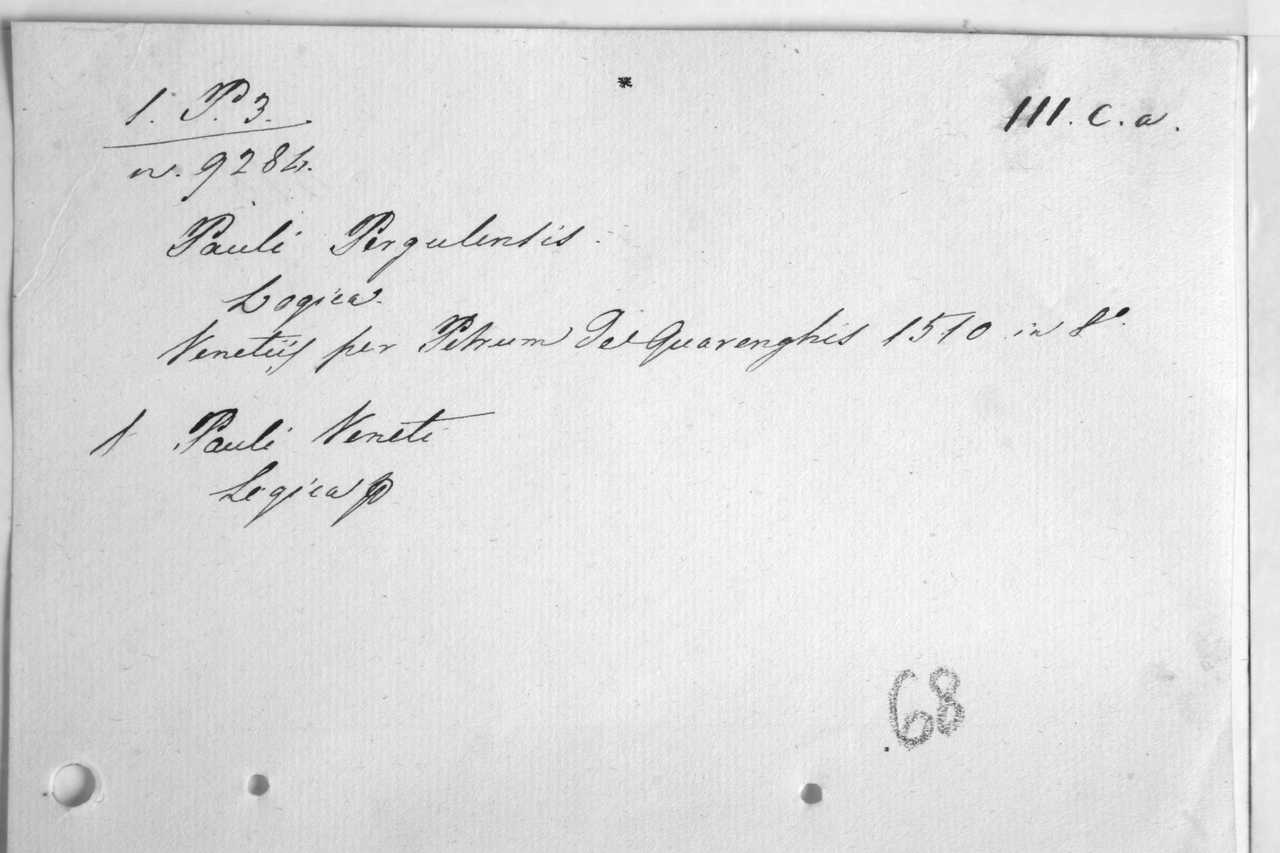 1. P. 3.
*
III. C. a.
n. 9284.
Pauli Pergulensis
Logica.
Venetiis per Petrum de Quarenghis 1510 in 8º.
1 Pauli Veneti
Logica
68